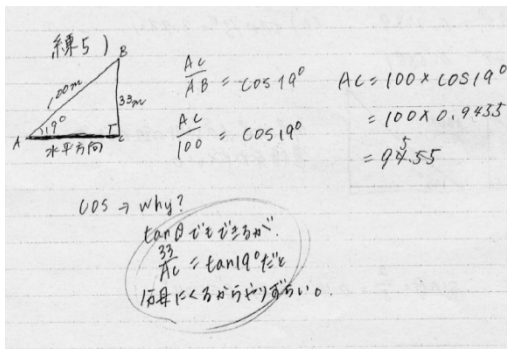 練5)
B
100m
33m
19°
A
C
水平方向
AC/AB = cos19°
AC/100 = cos19°
AC = 100 × cos19°
= 100 × 0.9455
= 94.55
cos → Why?
tanθでもできるが、
33/AC = tan19°だと
分母にくるからやりずらい。